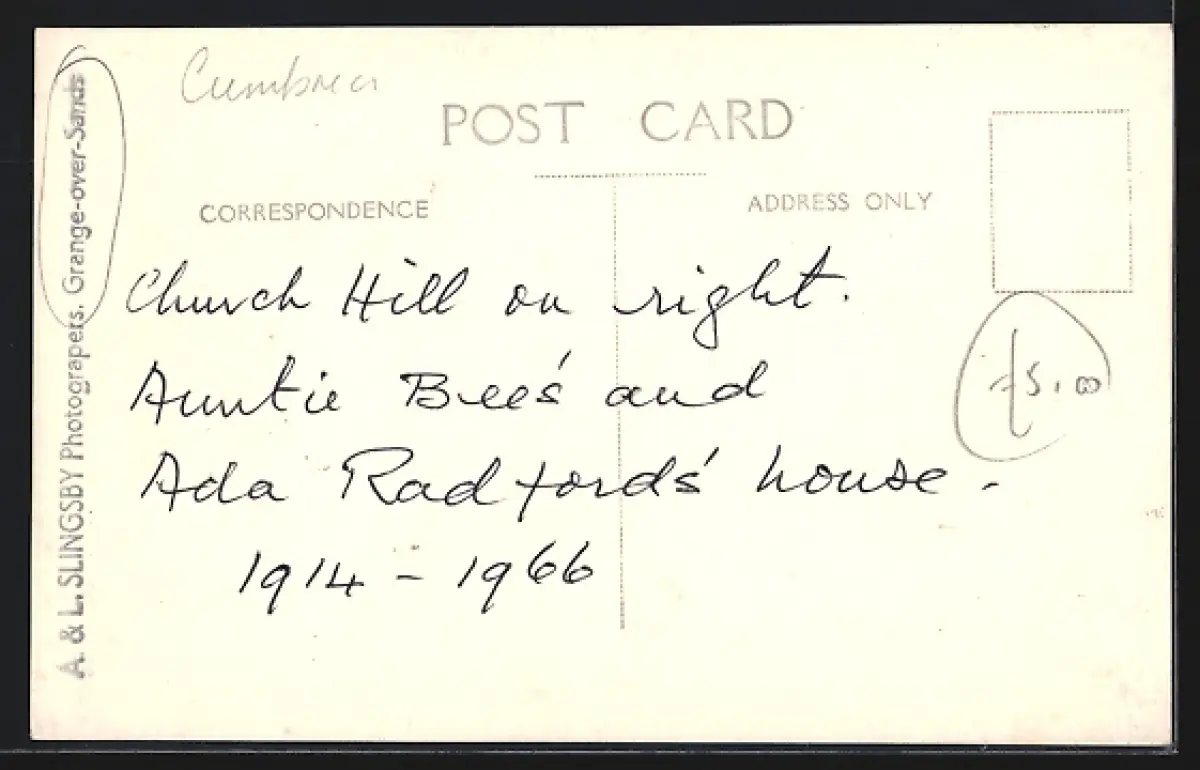 Cumbria
POST CARD
CORRESPONDENCE
ADDRESS ONLY
Church Hill on right.
Auntie Bee's and
Ada Radfords' house -
1914 - 1966
£5.00
A. & L. SLINGSBY Photograpers, Grange-over-Sands